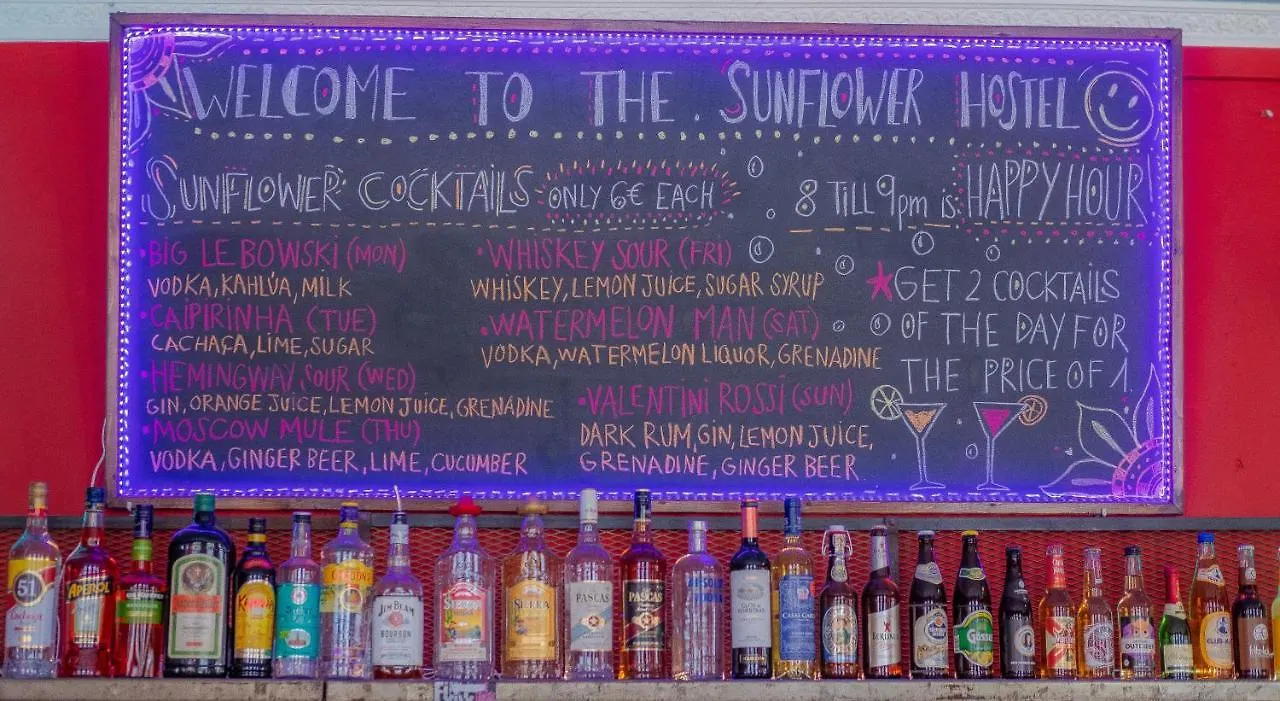 WELCOME TO THE SUNFLOWER HOSTEL
SUNFLOWER COCKTAILS ONLY 6€ EACH
8 TILL 9pm is HAPPY HOUR
• BIG LEBOWSKI (MON)
VODKA, KAHLÚA, MILK
• CAIPIRINHA (TUE)
CACHAÇA, LIME, SUGAR
• HEMINGWAY SOUR (WED)
GIN, ORANGE JUICE, LEMON JUICE, GRENADINE
• MOSCOW MULE (THU)
VODKA, GINGER BEER, LIME, CUCUMBER
• WHISKEY SOUR (FRI)
WHISKEY, LEMON JUICE, SUGAR SYRUP
• WATERMELON MAN (SAT)
VODKA, WATERMELON LIQUOR, GRENADINE
• VALENTINI ROSSI (SUN)
DARK RUM, GIN, LEMON JUICE,
GRENADINE, GINGER BEER
GET 2 COCKTAILS
OF THE DAY FOR
THE PRICE OF 1
51
APEROL
JIM BEAM
BOURBON
SIERRA
SIERRA
PASCAS
PASCAS
ABSOLUT
VODKA
BERLINER
Gösser
OUTCIDER
CLUB-MATE